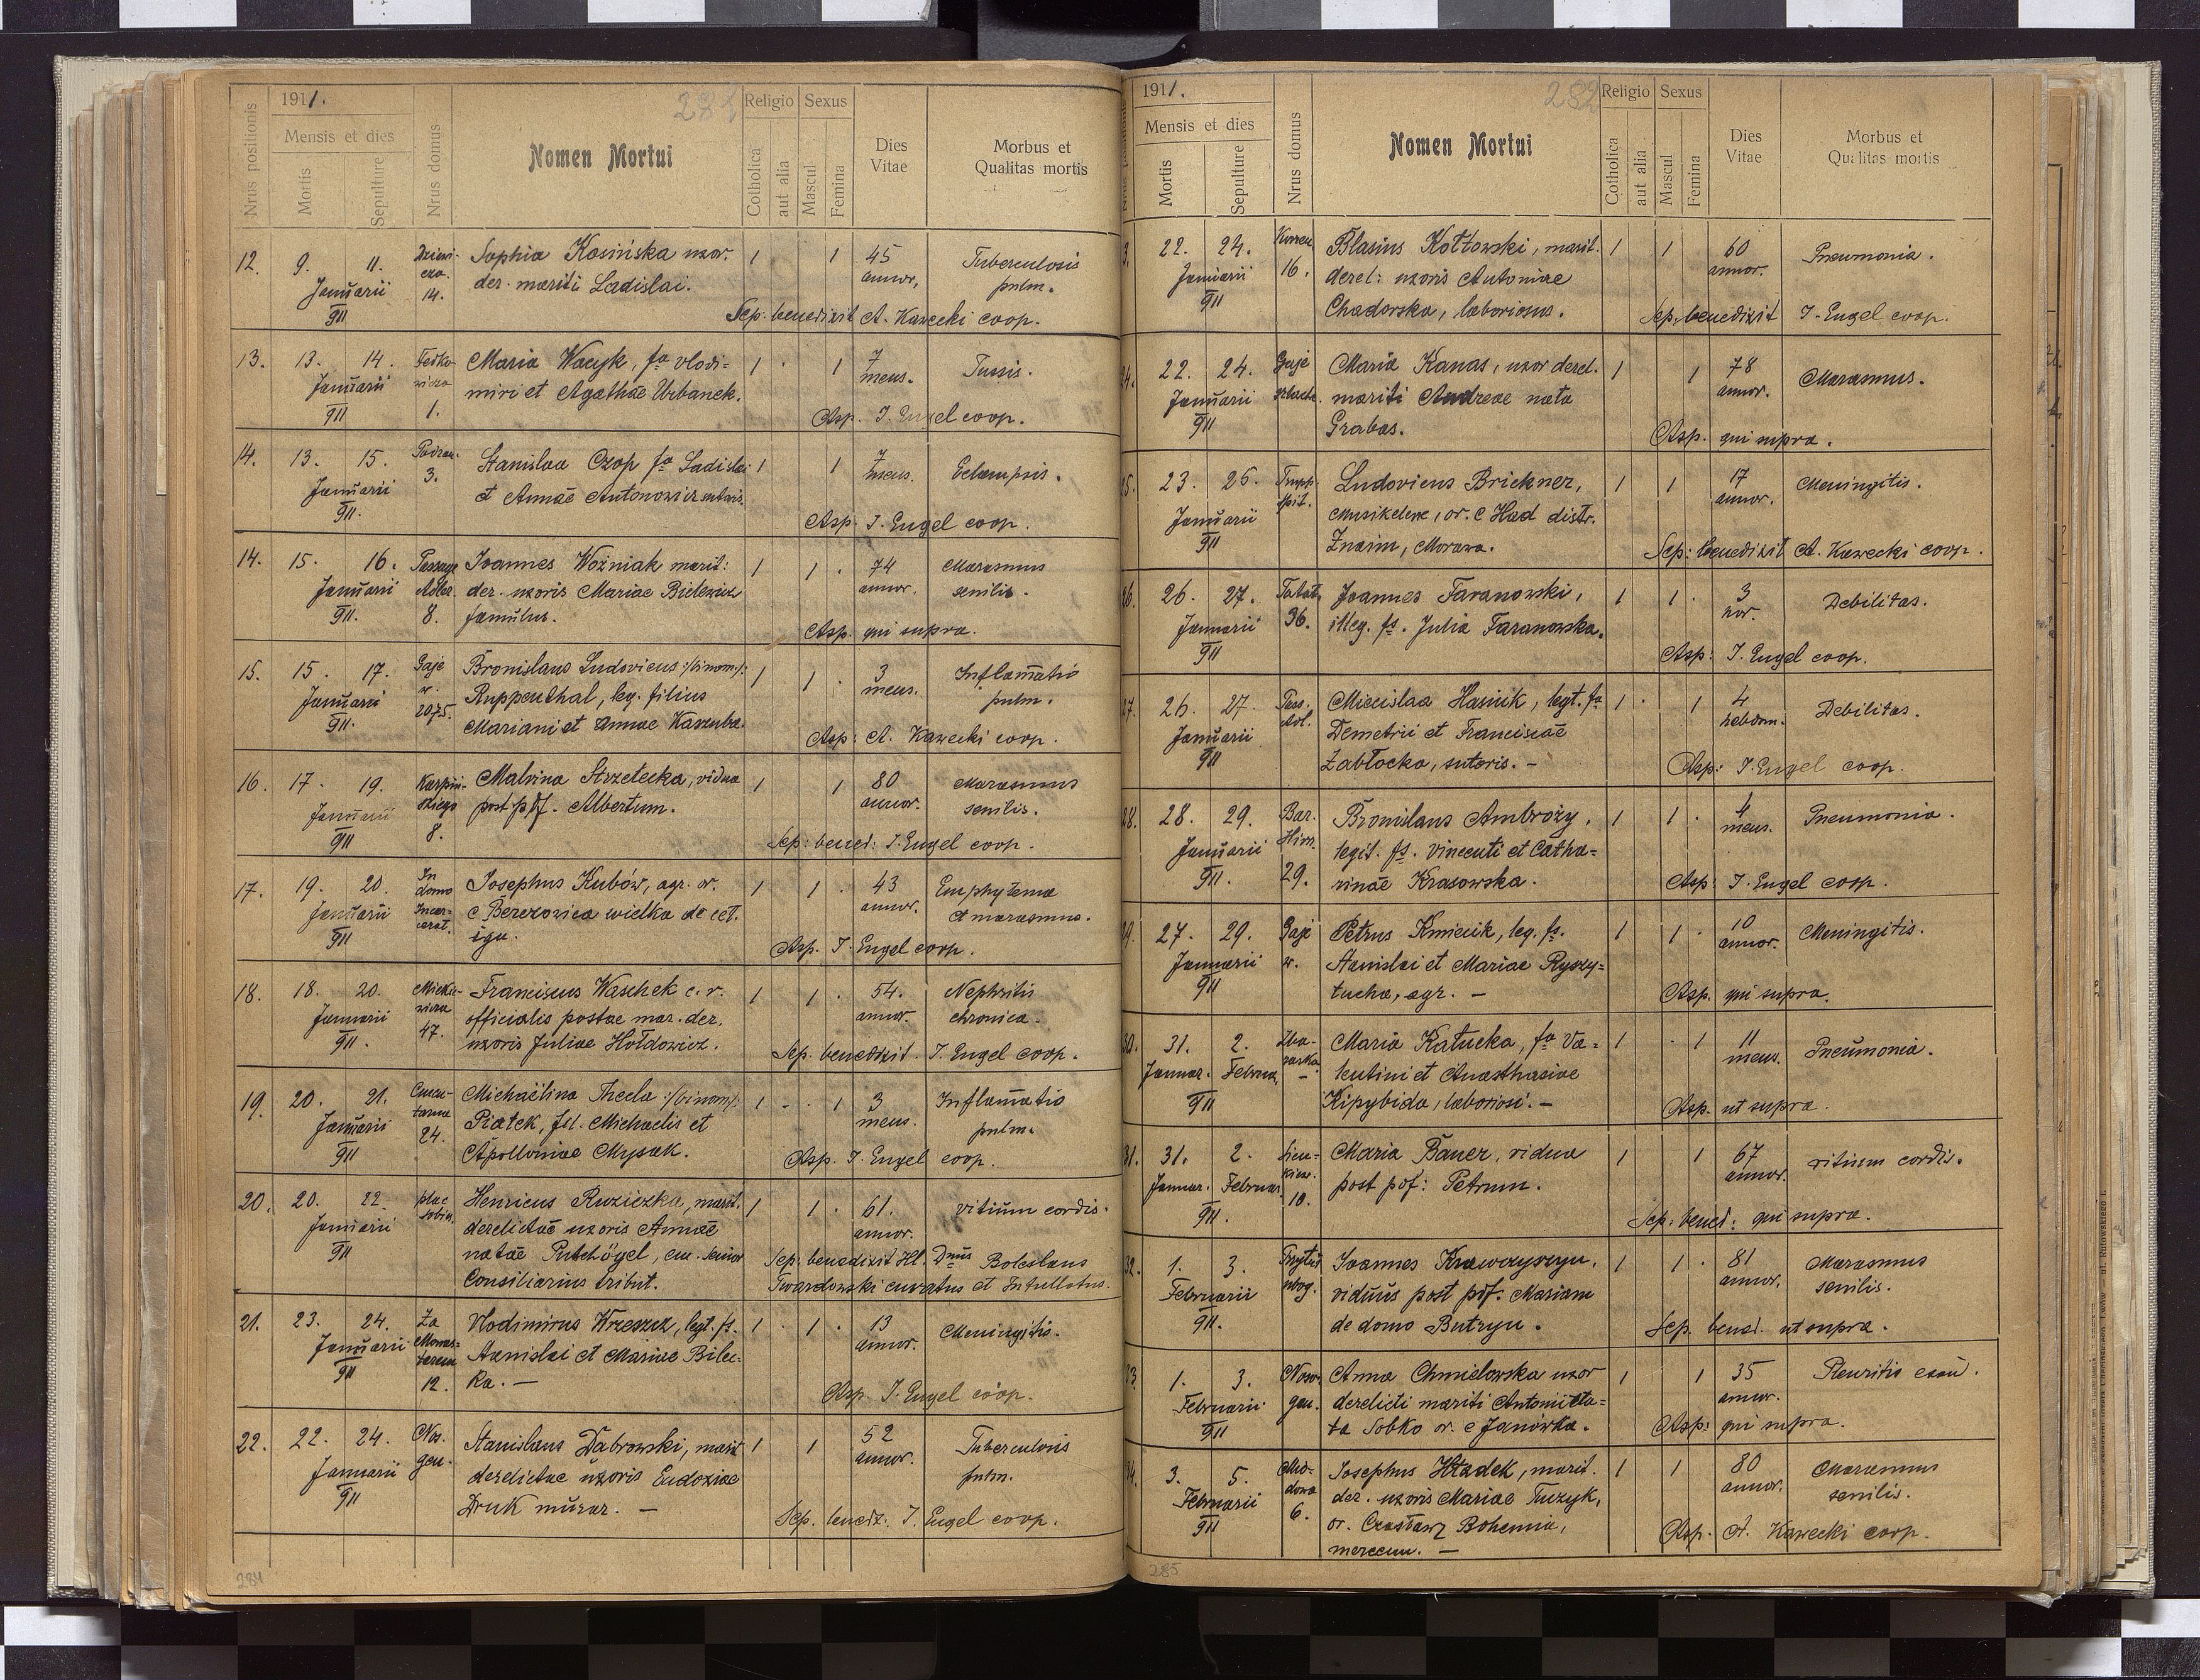 1911.
281
Nrus positionis
Mensis et dies
Mortis
Sepulture
Nrus domus
Nomen Mortui
Religio
Cotholica
aut alia
Sexus
Mascul
Femina
Dies Vitae
Morbus et
Qualitas mortis
12. 9. 11. Januarii 911 14. Sophia Kosińska uxor. 1 1 45 annor. Tuberculosis
der. mariti Ladislai. pulm.
Sep: benedixit A. Kawecki coop.
13. 13. 14. Januarii 911 1. Maria Wacyk, fa vlodi= 1 1 7 mens. Tussis.
miri et Agathae Urbanek.
Asp. I. Engel coop.
14. 13. 15. Januarii 911. 3. Stanislaa Czop fa Ladislai 1 1 7 mens. Eclampsis.
et Annae Antonowicz sutoris.
Asp. I. Engel coop.
14. 15. 16. Januarii 911. Passage Adler. 8. Joannes Woźniak marit: 1 1 74 annor. Marasmus
der. uxoris Mariae Bielewicz senilis.
famulus.
Asp. qui supra.
15. 15. 17. Januarii 911. Gaje w. 2075. Bronislaus Ludovicus :/binom:/: 1 1 3 mens. Inflamatio
Ruppenthal, leg. filius pulm.
Mariani et Annae Kaszuba.
Asp: A. Kawecki coop.
16. 17. 19. Januarii 911 Karpiń-
skiego
8. Malvina Strzelecka, vidua 1 1 80 annor. Marasmus
post pdf. Albertum. senilis.
Sep: bened: I. Engel coop.
17. 19. 20. Januarii 911 In
domo
Incar-
cerat. Josephus Kubów, agr. or. 1 1 43 annor. Emphysema
e Berezovica wielka de cet. et marasmus.
ign.
Asp. I. Engel coop.
18. 18. 20. Januarii 911. Mickie-
wicza
47. Franciscus Waschek c. r. 1 1 54. annor. Nephritis
officialis postae mar. der. chronica.
uxoris Juliae Hołdowicz.
Sep. benedixit. I. Engel coop.
19. 20. 21. Januarii 911 24. Michaëlina Thecla :/binom:/: 1 1 3 mens. Inflamatio
Piątek, fil. Michaelis et pulm.
Apolloniae Mysak.
Asp. I. Engel coop.
20. 20. 22. Januarii 911 plac
Sobies. Henricus Ruziczka, marit. 1 1 61. annor. vitium cordis.
derelictae uxoris Annae
natae Putschögel, em. senior
Consiliarius tribut.
Sep: benedixit Ill. Dnus Boleslaus
Twardowski curatus et Infullatus.
21. 23. 24. Januarii 911 Za
Monas-
terem
12. Vlodimirus Krzeszcz, legt. fs. 1 1 13 annor. Meningitis.
Stanislai et Mariae Bilec=
ka. —
Asp. I. Engel coop.
22. 22. 24. Januarii 911 Nos.
gen. Stanislaus Dąbrowski, marit. 1 1 52 annor. Tuberculosis
derelictae uxoris Eudoxiae pulm.
Druk murar. —
Sep. benedix. I. Engel coop.
284
1911.
282
Mensis et dies
Mortis
Sepulture
Nrus domus
Nomen Mortui
Religio
Cotholica
aut alia
Sexus
Mascul
Femina
Dies
Vitae
Morbus et
Qualitas mortis
22. 24. Januarii 911 16. Blasius Kotłowski, marit. 1 1 60 annor. Pneumonia.
derel: uxoris Antoniae
Chadorska, laboriosus.
Sep. benedixit I. Engel coop.
24. 22. 24. Januarii 911 Gaje Maria Kanas, uxor derel. 1 1 78 annor. Marasmus.
mariti Andreae nata
Grabas.
Asp. qui supra.
25. 23. 25. Januarii 911 Ludovicus Brickner, 1 1 17 annor. Meningitis.
Musikeleve, or. e Had distr.
Znaim, Morawa.
Sep: benedixit A. Kawecki coop.
26. 26. 27. Januarii 911 36. Joannes Taranowski, 1 1 3 hor. Debilitas.
illeg. fs. Julia Taranowska.
Asp: I. Engel coop.
27. 26. 27. Januarii 911 Pass.
Adl. Miecislaa Hasiuk, legt. fa 1 1 4 hebdom. Debilitas.
Demetrii et Franciscae
Zabłocka, sutoris. —
Asp: I. Engel coop.
28. 28. 29. Januarii 911. 29. Bronislaus Ambroży, 1 1 4 mens. Pneumonia.
legit. fs. Vincenti et Catha=
rinae Krasowska.
Asp: I. Engel coop.
29. 27. 29. Januarii 911 Gaje
w. Petrus Kmiecik, leg. fs. 1 1 10 annor. Meningitis.
Stanislai et Mariae Ryszy=
tucha, agr. —
Asp. qui supra.
30. 31. 2. Januar. Februar. 911 Zba-
razka
— Maria Katucka, fa Va= 1 1 11 mens. Pneumonia.
lentini et Anasthasiae
Kipybida, laboriosi. —
Asp. ut supra.
31. 31. 2. Januar. Februar. 911. Sien-
kiew.
10. Maria Bauer, vidua 1 1 67 annor. vitium cordis.
post pdf: Petrum.
Sep: bened: qui supra.
32. 1. 3. Februarii 911. Przytuł.
ubog. Joannes Krawczyszyn, 1 1 81 annor. Marasmus
viduus post pdf. Mariam senilis.
de domo Butryn.
Sep. bened. ut supra.
33. 1. 3. Februarii 911 Noso.
gen. Anna Chmielowska uxor 1 1 35 annor. Pleuritis
derelicti mariti Antonii na=
ta Sobko or. e Janówka.
Asp: qui supra.
34. 3. 5. Februarii 911 Mio-
dowa
6. Josephus Hładek, marit. 1 1 80 annor. Marasmus
der. uxoris Mariae Tuczyk, senilis.
or. Czasławz Bohemia,
mercenn. —
Asp. A. Kawecki coop.
285